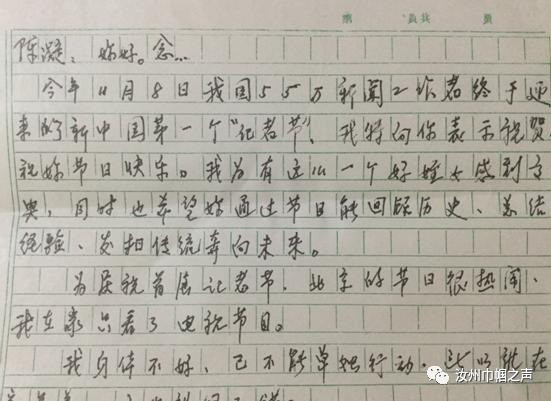 第 页 共 页
陈凝：妳好。念…
今年11月8日我国55万新闻工作者终于迎
来的新中国第一个“记者节”，我特向你表示祝贺
祝妳节日快乐。我为有这么一个好姪女感到高
兴，同时也希望妳通过节日能回顾历史、总结
经验、发扬传统奔向未来。
为庆祝首届记者节，北京的节日很热闹，
我在家只看了电视节目。
我身体不好，已不能单独行动，所以就在
汝州巾帼之声